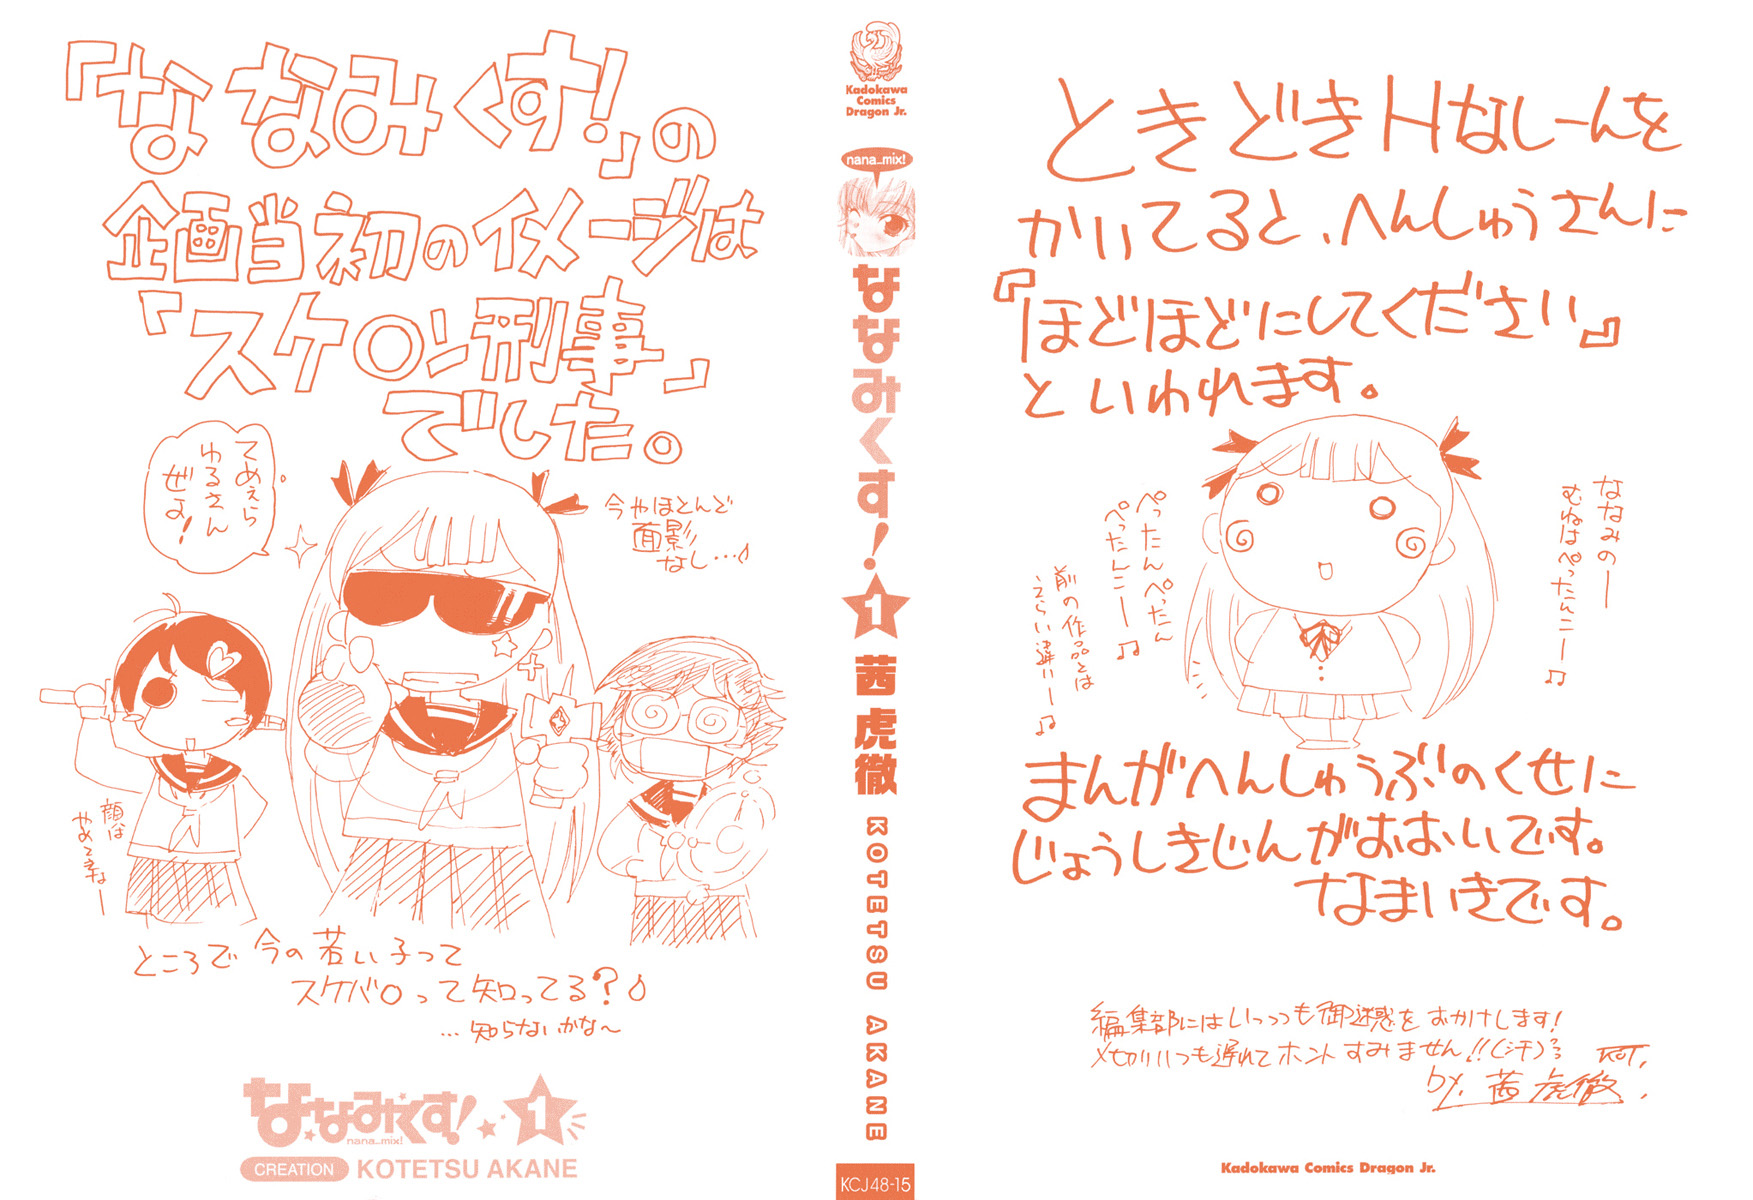 『ななみくす!』の
企画当初のイメージは
「スケ〇ン刑事」
でした。
てめぇら
ゆるさん
ぜよ!
今やほとんど
面影
なし…♪
顔は
やめてネー
ところで今の若い子って
スケバ〇って知ってる?♪
…知らないかな〜
ななみくす!
nana_mix!
1
CREATION KOTETSU AKANE
Kadokawa
Comics
Dragon Jr.
nana_mix!
ななみくす!
1
茜 虎徹
KOTETSU AKANE
KCJ48-15
ときどきHなしーんを
かいてると、へんしゅうさんに
『ほどほどにしてください』
といわれます。
ななみのー
むねはぺったんこー♪
ぺったんぺったん
ぺったんこー♪
前の作品とは
えらい違いー♪
まんがへんしゅうぶのくせに
じょうしきじんがおおいです。
なまいきです。
編集部にはいっつも御迷惑をおかけします!
〆切りいつも遅れてホントすみません!!(汗)
KOT.
by. 茜 虎徹.
Kadokawa Comics Dragon Jr.